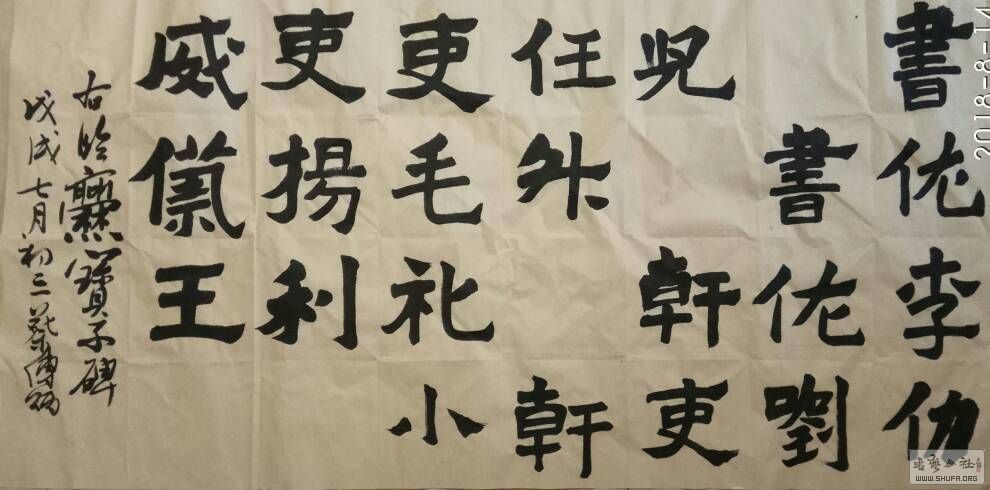 書佐李仂
書佐劉
兒 幹吏
任升 幹
吏毛礼小
吏揚利
威儀王
右臨爨寶子碑
戊戌七月初三蔡傳
2018-8-14
书艺公社
WWW.SHUFA.ORG